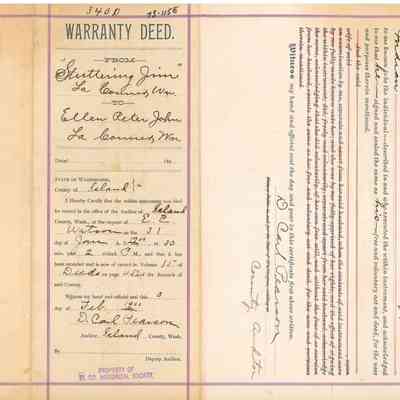 3400
93-115E
WARRANTY DEED.
FROM
"Stuttering Jim"
La Conner, Wn.
TO
Ellen Peter John
La Conner, Wn
Dated 18
STATE OF WASHINGTON,
County of Island
I Hereby Certify that the within instrument was filed
for record in the office of the Auditor of Island
County, Wash., at the request of E. P.
Watson on the 31
day of Jan 30
min. past 2 o'clock P. M., and that it has
been recorded and is now of record in Volume 15 of
Deeds on page of the Records of
said County.
Witness my hand and official seal this 3
day of Feb.
D. Carl Pearson
Auditor, Island County, Wash.
By
Deputy Auditor.
PROPERTY OF
IS. CO. HISTORICAL SOCIETY
Indian
to me known to be the individual described in and who executed the within instrument, and acknowledged
to me that he signed and sealed the same as his free and voluntary act and deed, for the uses
and purposes therein mentioned.
And the said
wife of said
Witness my hand and official seal the day and year in this certificate first above written.
D. Carl Pearson
County Auditor